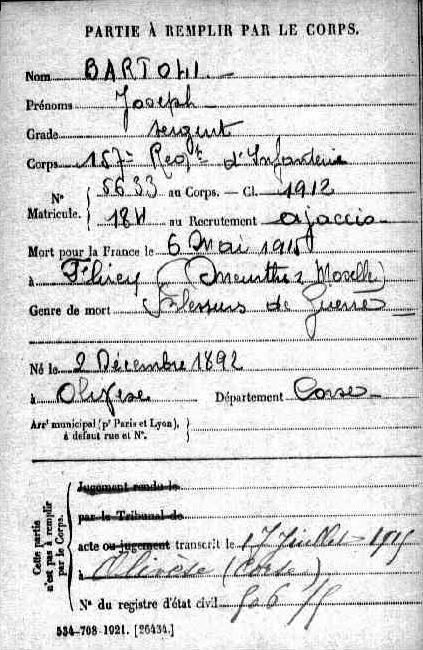 PARTIE À REMPLIR PAR LE CORPS.
Nom BARTOLI
Prénoms Joseph
Grade sergent
Corps 157e Regt d'Infanterie
N° Matricule. 5633 au Corps. — Cl. 1912
au Recrutement ajaccio
Mort pour la France le 6 Mai 1915
à Flirey (Meurthe & Moselle)
Genre de mort Blessures de Guerre
Né le 2 Décembre 1892
à Olivese Département Corse
Arrt municipal (pr Paris et Lyon), à défaut rue et N°.
Cette partie n'est pas à remplir par le Corps.
Jugement rendu le
par le Tribunal de
acte ou jugement transcrit le 17 juillet 1915
à Olivese (Corse)
N° du registre d'état civil
534-708-1921. [26434.]